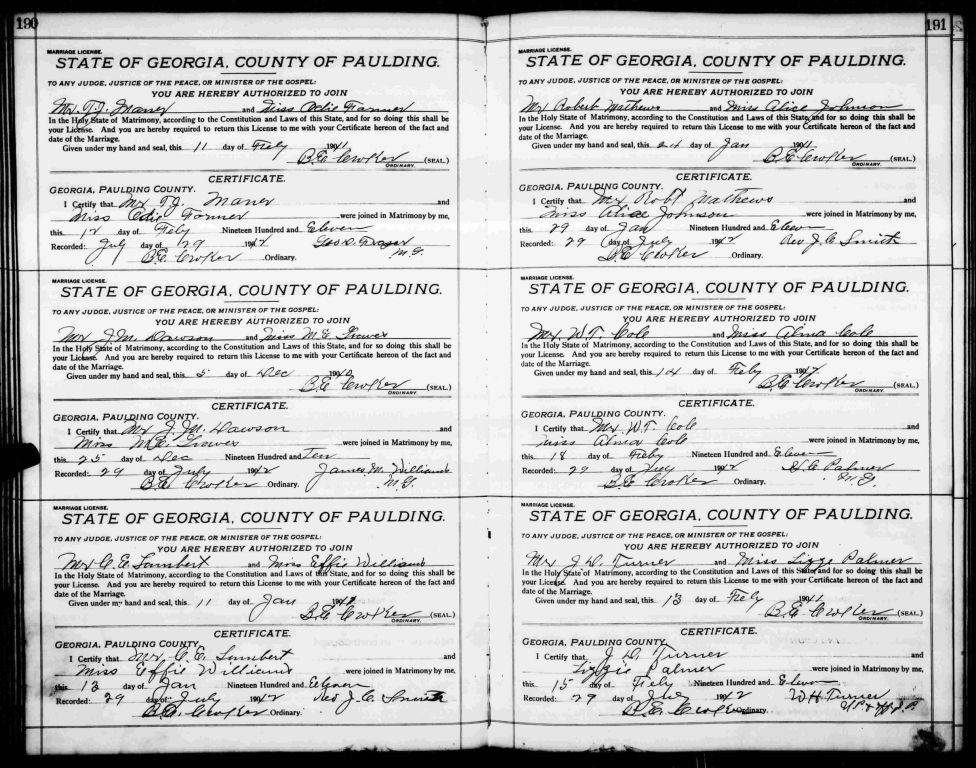 190
MARRIAGE LICENSE.
STATE OF GEORGIA, COUNTY OF PAULDING.
TO ANY JUDGE, JUSTICE OF THE PEACE, OR MINISTER OF THE GOSPEL:
YOU ARE HEREBY AUTHORIZED TO JOIN
Mr. T.J. Maner and Miss Odie Farmer
In the Holy State of Matrimony, according to the Constitution and Laws of this State, and for so doing this shall be
your License. And you are hereby required to return this License to me with your Certificate hereon of the fact and
date of the Marriage.
Given under my hand and seal, this 11 day of Feby 1911
B.E. Croker (SEAL.)
ORDINARY.
CERTIFICATE.
GEORGIA, PAULDING COUNTY.
I Certify that Mr T.J. Maner and
Miss Odie Farmer were joined in Matrimony by me,
this 12 day of Feby Nineteen Hundred and Eleven
Recorded: July day of 29 1912 Geo. D.
B.E. Croker Ordinary. M.G.
MARRIAGE LICENSE.
STATE OF GEORGIA, COUNTY OF PAULDING.
TO ANY JUDGE, JUSTICE OF THE PEACE, OR MINISTER OF THE GOSPEL:
YOU ARE HEREBY AUTHORIZED TO JOIN
Mr J.M. Dawson and Miss M.E.
In the Holy State of Matrimony, according to the Constitution and Laws of this State, and for so doing this shall be
your License. And you are hereby required to return this License to me with your Certificate hereon of the fact and
date of the Marriage.
Given under my hand and seal, this 5 day of Dec 1910
B.E. Croker (SEAL.)
ORDINARY.
CERTIFICATE.
GEORGIA, PAULDING COUNTY.
I Certify that Mr J.M. Dawson and
Miss M.E. were joined in Matrimony by me,
this 25 day of Dec Nineteen Hundred and Ten
Recorded: 29 day of July 1912 James M. Williams
B.E. Croker Ordinary. M.G.
MARRIAGE LICENSE.
STATE OF GEORGIA, COUNTY OF PAULDING.
TO ANY JUDGE, JUSTICE OF THE PEACE, OR MINISTER OF THE GOSPEL:
YOU ARE HEREBY AUTHORIZED TO JOIN
Mr C.E. Lambert and Miss Effie Williams
In the Holy State of Matrimony, according to the Constitution and Laws of this State, and for so doing this shall be
your License. And you are hereby required to return this License to me with your Certificate hereon of the fact and
date of the Marriage.
Given under my hand and seal, this 11 day of Jan
B.E. Croker (SEAL.)
ORDINARY.
CERTIFICATE.
GEORGIA, PAULDING COUNTY.
I Certify that Mr. C.E. Lambert and
Miss Effie Williams were joined in Matrimony by me,
this 13 day of Jan Nineteen Hundred and Eleven
Recorded: 29 day of July 1912 Rev J.C. Smith
B.E. Croker Ordinary.
191
MARRIAGE LICENSE.
STATE OF GEORGIA, COUNTY OF PAULDING.
TO ANY JUDGE, JUSTICE OF THE PEACE, OR MINISTER OF THE GOSPEL:
YOU ARE HEREBY AUTHORIZED TO JOIN
Mr Robert Mathews and Miss Alice Johnson
In the Holy State of Matrimony, according to the Constitution and Laws of this State, and for so doing this shall be
your License. And you are hereby required to return this License to me with your Certificate hereon of the fact and
date of the Marriage.
Given under my hand and seal, this 24 day of Jan 1911
B.E. Croker (SEAL.)
ORDINARY.
CERTIFICATE.
GEORGIA, PAULDING COUNTY.
I Certify that Mr Robt Mathews and
Miss Alice Johnson were joined in Matrimony by me,
this 29 day of Jan Nineteen Hundred and Eleven
Recorded: 29 day of July 1912 Rev J.C. Smith
B.E. Croker Ordinary.
MARRIAGE LICENSE.
STATE OF GEORGIA, COUNTY OF PAULDING.
TO ANY JUDGE, JUSTICE OF THE PEACE, OR MINISTER OF THE GOSPEL:
YOU ARE HEREBY AUTHORIZED TO JOIN
Mr. W.T. Cole and Miss Alma Cole
In the Holy State of Matrimony, according to the Constitution and Laws of this State, and for so doing this shall be
your License. And you are hereby required to return this License to me with your Certificate hereon of the fact and
date of the Marriage.
Given under my hand and seal, this 14 day of Feby
B.E. Croker (SEAL.)
ORDINARY.
CERTIFICATE.
GEORGIA, PAULDING COUNTY.
I Certify that Mr W.T. Cole and
Miss Alma Cole were joined in Matrimony by me,
this 18 day of Feby Nineteen Hundred and Eleven
Recorded: 29 day of July 1912 H.C. Palmer
B.E. Croker Ordinary. M.G.
MARRIAGE LICENSE.
STATE OF GEORGIA, COUNTY OF PAULDING.
TO ANY JUDGE, JUSTICE OF THE PEACE, OR MINISTER OF THE GOSPEL:
YOU ARE HEREBY AUTHORIZED TO JOIN
Mr J.D. Turner and Miss Lizzie Palmer
In the Holy State of Matrimony, according to the Constitution and Laws of this State, and for so doing this shall be
your License. And you are hereby required to return this License to me with your Certificate hereon of the fact and
date of the Marriage.
Given under my hand and seal, this 13 day of Feby 1911
B.E. Croker (SEAL.)
ORDINARY.
CERTIFICATE.
GEORGIA, PAULDING COUNTY.
I Certify that J.D. Turner and
Lizzie Palmer were joined in Matrimony by me,
this 15 day of Feby Nineteen Hundred and Eleven
Recorded: 29 day of July 1912 W.H Turner
B.E. Croker Ordinary.